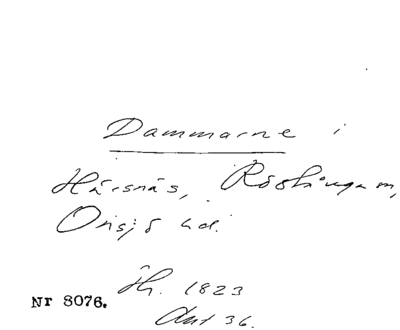 Dammarne i
Härsnäs, Röshångam,
Onsjö hd.
Åh. 1823
Akt 36.
Nr 8076.